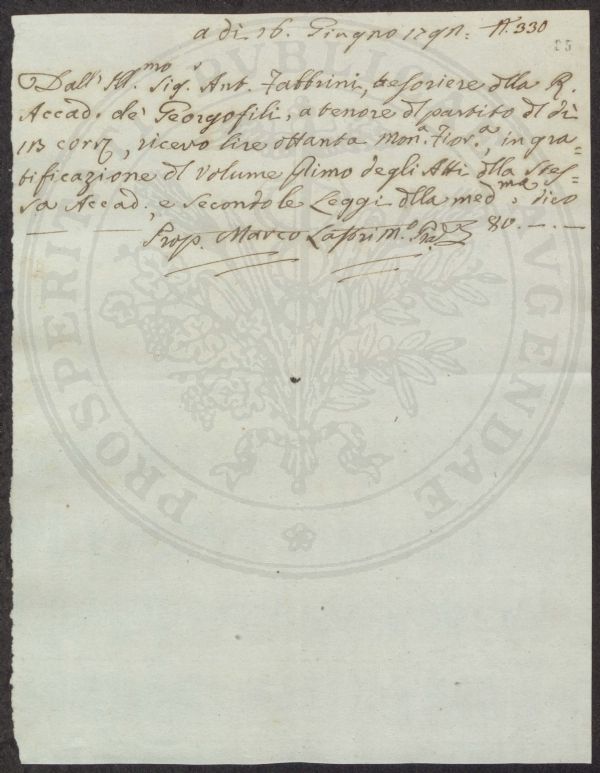 a dì 16. Giugno 1791. N. 330
Dall' Ill.mo Sig.r Ant. Fabbrini, tesoriere dlla R.
Accad. de' Georgofili, a tenore dl partito dl dì
113 corr.e, ricevo lire ottanta Mon.a Fior.a, in gra-
tificazione dl Volume Primo degli Atti dlla Stes-
sa Accad., e Secondo le Leggi dlla med.ma, dico
— — Prop. Marco Lastri M.o Pra 80. —. —
PROSPERITATI PUBLICAE AUGENDAE